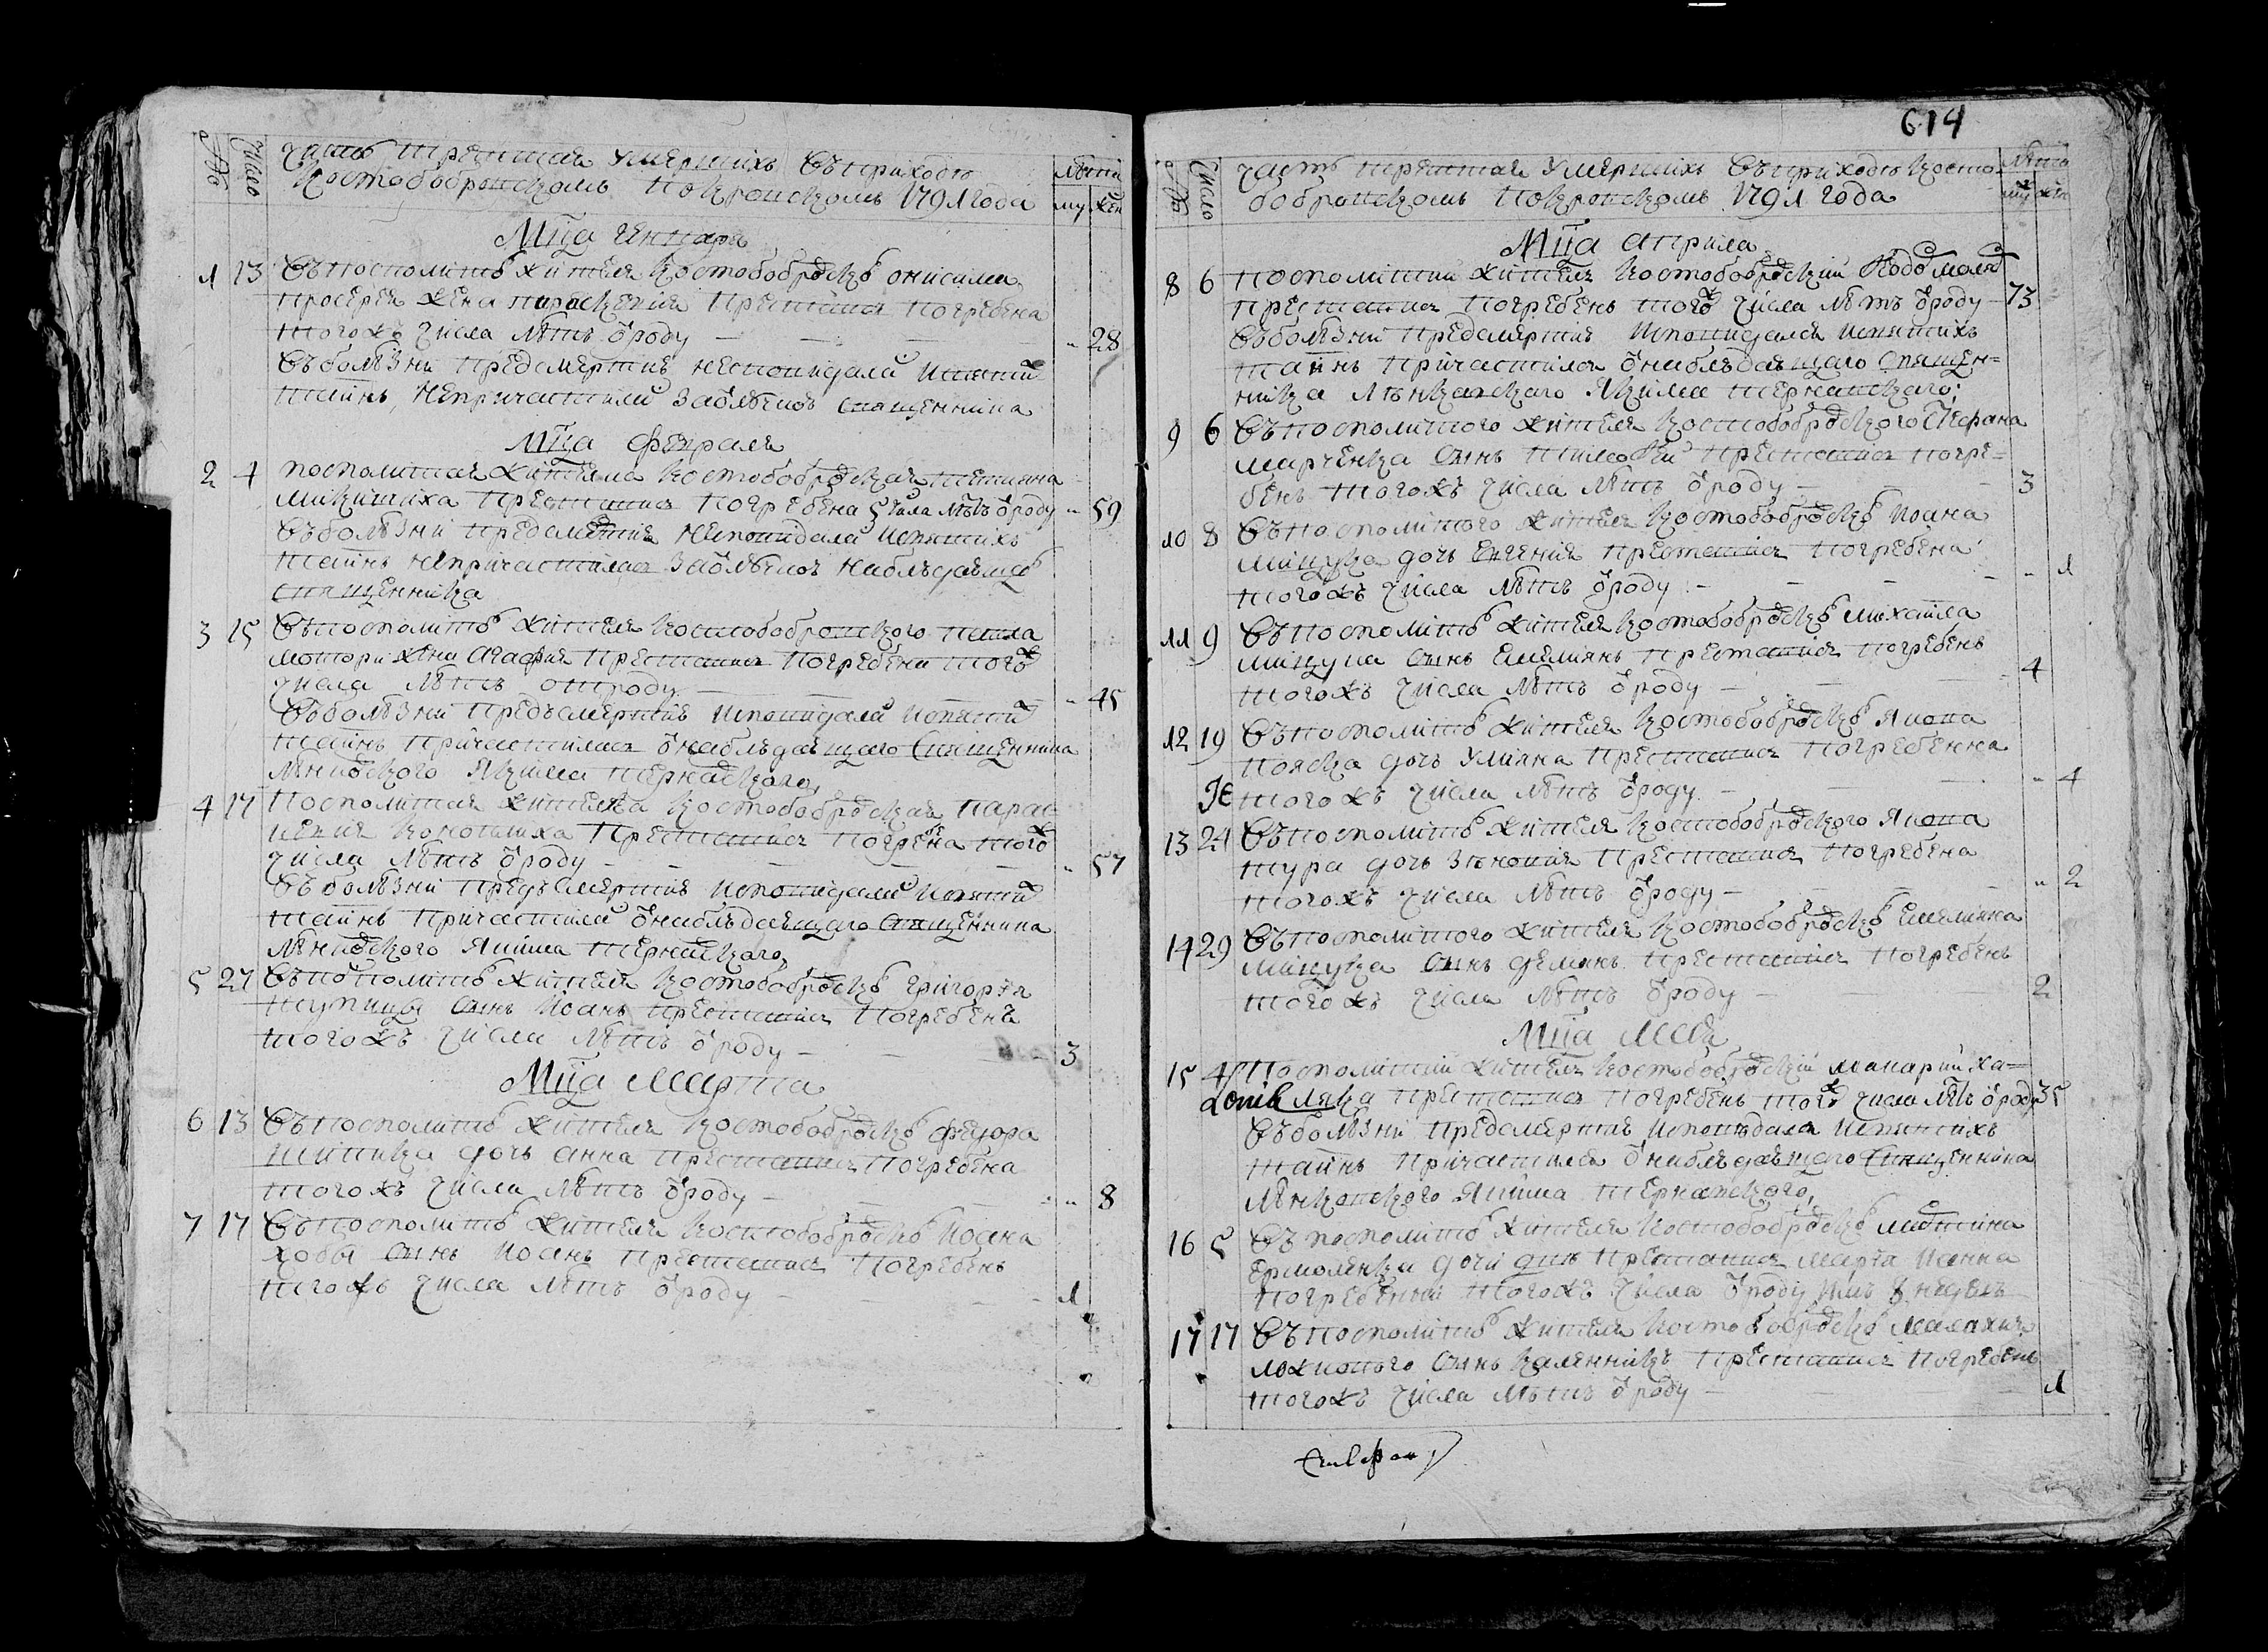 №
Число
Часть третая Умершихъ въ приходѣ
Костобобровскомъ Покровскомъ 1791 года
лѣта
му жен
Мца Генваря
1 13 въ посполитаго жителя костобобровскаго онисима
жена параскевия преставися погребена
тогожъ числа лѣтъ ѿроду 28
въ болѣзни предсмертне неисповидалас и святих
таинъ непричастилас заболѣзнію священника
Мца Февраля
2 4 посполитая жителка костобобровская татияна
микитиха преставися погребена 5 числа лѣтъ ѿроду 59
въ болѣзни предсмертне неисповидалас и святихъ
таинъ непричастилас наблюдающаго
священника
3 15 въ посполитаго жителя костобобровского
жена агафия преставися погребена тогож
числа лѣтъ отроду 45
въ болѣзни предъсмертне исповидалас и святих
таинъ причастилас ѿ наблюдающаго священника
ленковского якима тернавского,
4 17 Посполитая жителка костобобровская парас-
кевия преставися погребена тогож
числа лѣтъ ѿроду 57
въ болѣзни предъсмертне исповидалас и святих
таинъ причастилас ѿ наблюдающаго священника
ленковского якима тернавского,
5 27 въ посполитаго жителя костобобровскаго григория
сынъ иоанъ преставися погребенъ
тогожъ числа лѣтъ ѿроду 3
Мца Марта
6 13 въ посполитаго жителя костобобровскаго федора
дочь анна преставися погребена
тогожъ числа лѣтъ ѿроду 8
7 17 въ посполитаго жителя костобобровскаго иоана
хобы сынъ иоанъ преставися погребенъ
тогожъ числа лѣтъ ѿроду 1
614
№
Число
часть третая умершихъ въ приходѣ косто-
бобровскомъ покровскомъ 1791 года
лѣта
му жен
Мца априла
8 6 посполитий житель костобобровский
преставися погребенъ тогож числа лѣтъ ѿроду 73
въ болѣзни предсмертне исповидался и святихъ
таинъ причастился ѿ наблюдающаго священ=
ника ленковского якима тернавского;
9 6 въ посполитого жителя костобобровского стефана
марченка сынъ тимофей преставися погре=
бенъ тогожъ числа лѣтъ ѿроду 3
10 8 въ посполитого жителя костобобровскаго иоана
мицука дочь евгения преставися погребена
тогожъ числа лѣтъ ѿроду 1
11 9 въ посполитаго жителя костобобровскаго михаила
мицука сынъ емелиянъ преставися погребенъ
тогожъ числа лѣтъ ѿроду 4
12 19 въ посполитаго жителя костобобровскаго якова
пояска дочь улияна преставися погребенна
тогожъ числа лѣтъ ѿроду 4
13 21 въ посполитаго жителя костобобровского якова
тура дочь зѣновия преставися погребена
тогожъ числа лѣтъ ѿроду 2
14 29 въ посполитого жителя костобобровскаго емелияна
мицука сынъ демянъ преставися погребенъ
тогожъ числа лѣтъ ѿроду 2
Мца Мая
15 4 Посполитий житель костобобровский макарий ха-
преставися погребенъ тогож числа лѣтъ ѿроду 35
въ болѣзни предсмертне исповѣдался и святихъ
таинъ причастился ѿ наблюдающаго священника
ленковского якима тернавского,
16 5 въ посполитаго жителя костобобровскаго
ермоленка дочи двѣ преставися марфа и анна
погребенни тогожъ числа ѿроду имъ 8 недель
17 17 въ посполитаго жителя костобобровскаго
сынъ калѣнникъ преставися погребенъ
тогожъ числа лѣтъ ѿроду 1